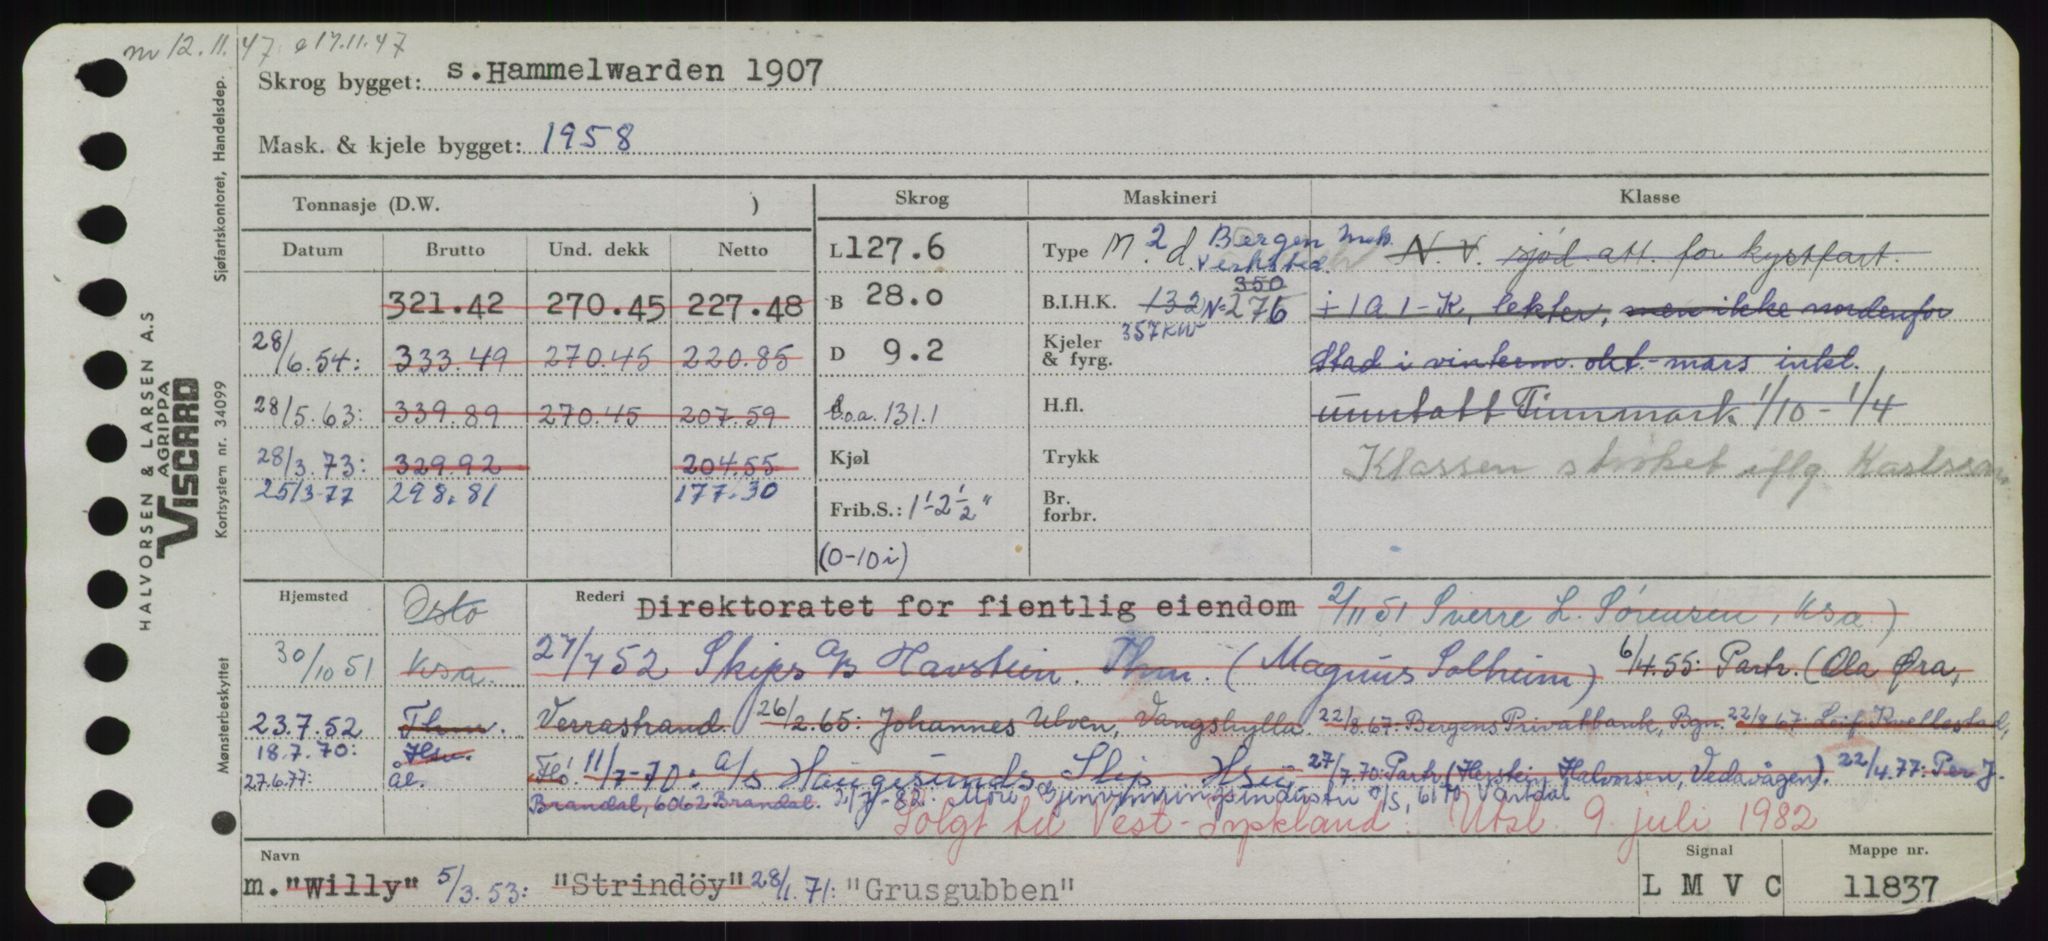 nv 12.11.47 e 17.11.47
Skrog bygget: s.Hammelwarden 1907
Mask. & kjele bygget: 1958
Tonnasje (D.W. ) Skrog Maskineri Klasse
Datum Brutto Und. dekk Netto
321.42 270.45 227.48
28/6.54: 333.49 270.45 220.85
28/5.63: 339.89 270.45 207.59
28/3.73: 329.92 204.55
25/3-77 298.81 177.30
L 127.6
B 28.0
D 9.2
l.o.a. 131.1
Kjøl
Frib.S.: 1'-2½"
(0-10i)
Type M. 2 d. Bergen Mek. Verksted.
350
B.I.H.K. 132 N-276
357KW
Kjeler & fyrg.
H.fl.
Trykk
Br. forbr.
N.V. sjød. att. for kystfart.
+1A1-K, lekter, men ikke nordenfor
Stad i vinterm. okt.-mars inkl.
unntatt Finnmark 1/10-1/4
Klassen strøket iflg. Karlssen
Hjemsted Oslo Rederi Direktoratet for fientlig eiendom 2/11 51 Sverre L. Sørensen, Ksa.)
30/10 51 Ksa. 27/7 52 Skips A/S Havstein. Thm. (Magnus Solheim) 6/4.55: Partr. (Ola Øra,
23.7.52 Thm. Verrastrand. 26/2.65: Johannes Ulven, Vangshylla. 22/8.67: Bergens Privatbank, Bgn. 22/8.67: Leif Kvellestad,
18.7.70: Hsu. Flo. 11/7-70: A/S Haugesunds Skip Hsu 27/7.70: Partr. (Øystein Halvorsen, Vedavågen). 22/4.77: Per J.
27.6.77: Ål. Brandal, 6062 Brandal. 2/7-82. Møre Gjenvinningsindustri A/S, 6170 Vartdal
Solgt til Vest-Tyskland. Utsl. 9. juli 1982
Navn Signal Mappe nr.
m."Willy" 5/3.53: "Strindöy" 28/1.71: "Grusgubben" L M V C 11837
HALVORSEN & LARSEN A.S
AGRIPPA
VISCARD
Kortsystem nr. 34099
Sjøfartskontoret, Handelsdep.
Mønsterbeskyttet